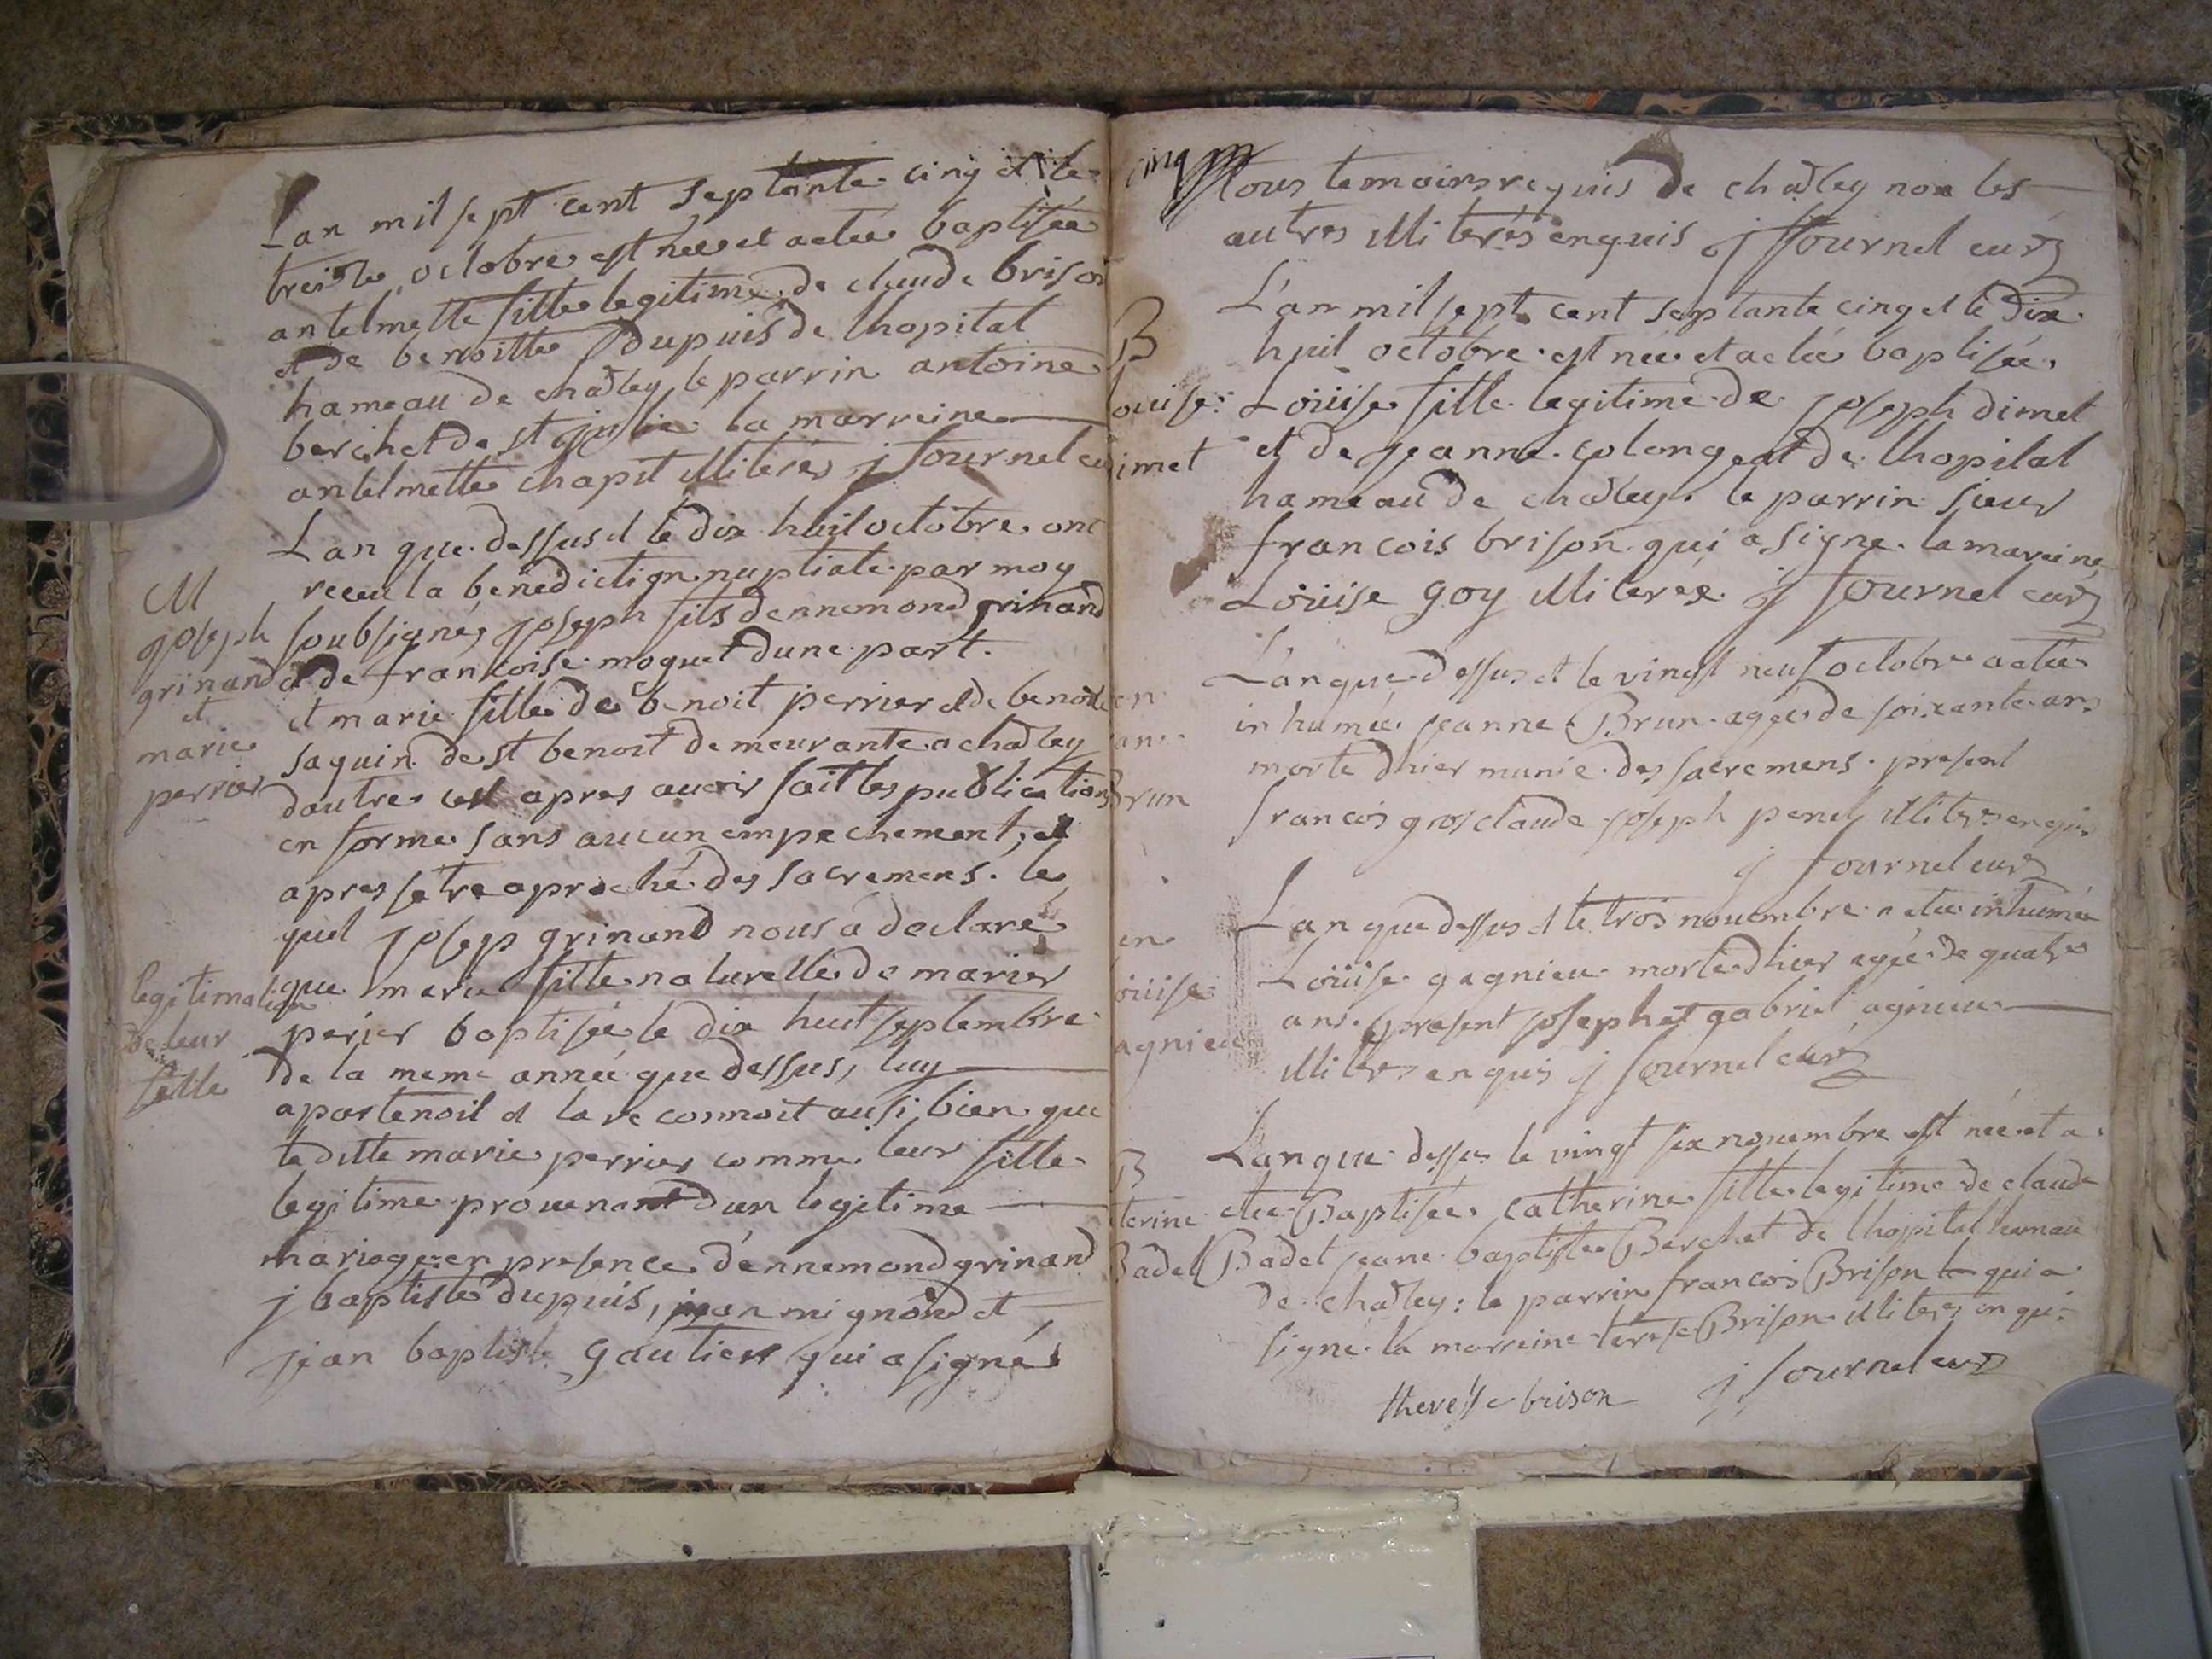 Lan mil sept cent septante cinq et le
treisle octobre est née et a eté baptisée
antelmette fille legitime de claude brison
et de benoitte dupuis de lhopital
hameau de chaõley le parrin antoine
berchet de st julie la marreine
antelmette chapit illiterés j fournel curé
Lan que dessus et le dix huit octobre ont
receu la benediction nuptiale par moy
M
joseph
grinand
et
marie
perrier
soubsigné, joseph fils dennemond grinand
et de francoise moquet dune part.
et marie fille de benoit perrier et de benoite
saquin de st benoit demeurante a chaõley
dautre et apres auoir fait les publications
en forme sans aucun empechement, et
apres setre aproché des sacremens. le
quel josep grinand nous a declaré
legitimation
de leur
fille
que marie fille naturelle de marie
perier baptisée le dix huit septembre
de la meme année que dessus, luy
apartenoit et la reconnoit ausi bien que
leditte marie perrier comme leur fille
legitime prouenant dun legitime
mariage en presence dennemond grinand
j baptiste dupuis, jean mignond et
jean baptiste gautier qui a signé
cinq
tous temoins requis de chaõley non les
autres illiterés enquis j fournel curé
B
louise
dimet
L'an mil sept cent septante cinq et le dix
huit octobre est née et a eté baptisée
Loüise fille legitime de joseph dimet
et de jeanne colongeat de lhopital
hameau de chaõley. le parrin sieur
francois brison qui a signe la mareine
Loüise goy illiterée j fournel curé
en
ane
Brun
L'an que dessus et le vingt neuf octobre a eté
inhumée jeanne Brun agée de soixante ans
morte dhier munie des sacremens. present
francois grosclaude joseph penet illiters enquis
j fournel curé
en
ouise
agnieu
Lan que dessus et le trois nouembre a eté inhumée
Loüise gagnieu morte dhier agée de quatre
ans. present joseph et gabriel agnieu
illiters enquis j fournel curé
B
terine
Badel
Lan que dessus le vingt six nouembre est née et a
etee Baptisée catherine fille legitime de claude
Badet jeane baptiste Berchet de lhopital hameau
de chaõley: le parrin francois Brison qui a
signé. la marreine terese Brison illiters enquis
theresse brison j fournel curé